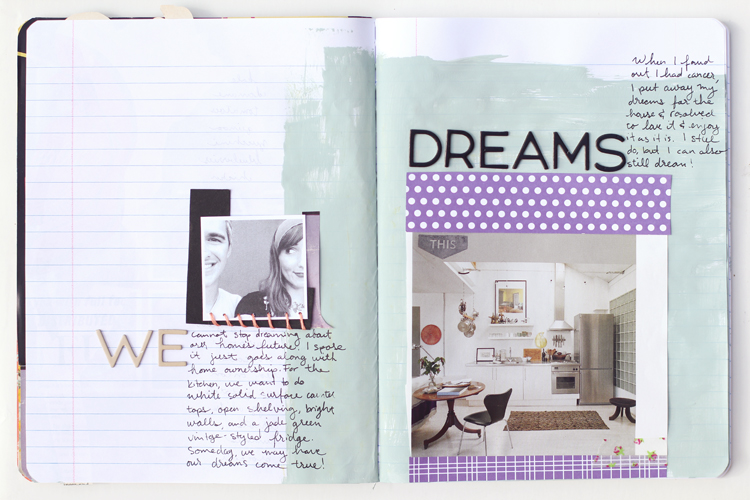 WE
cannot stop dreaming about
our homes future. I spose
it just goes along with
home ownership. For the
kitchen, we want to do
white solid surface counter
tops, open shelving, bright
walls, and a jade green
vintage-styled fridge.
Someday, we may have
our dreams come true!
DREAMS
When I found
out I had cancer,
I put away my
dreams for the
house & resolved
to love it & enjoy
it as it is. I still
do, but I can also
still dream!
THIS